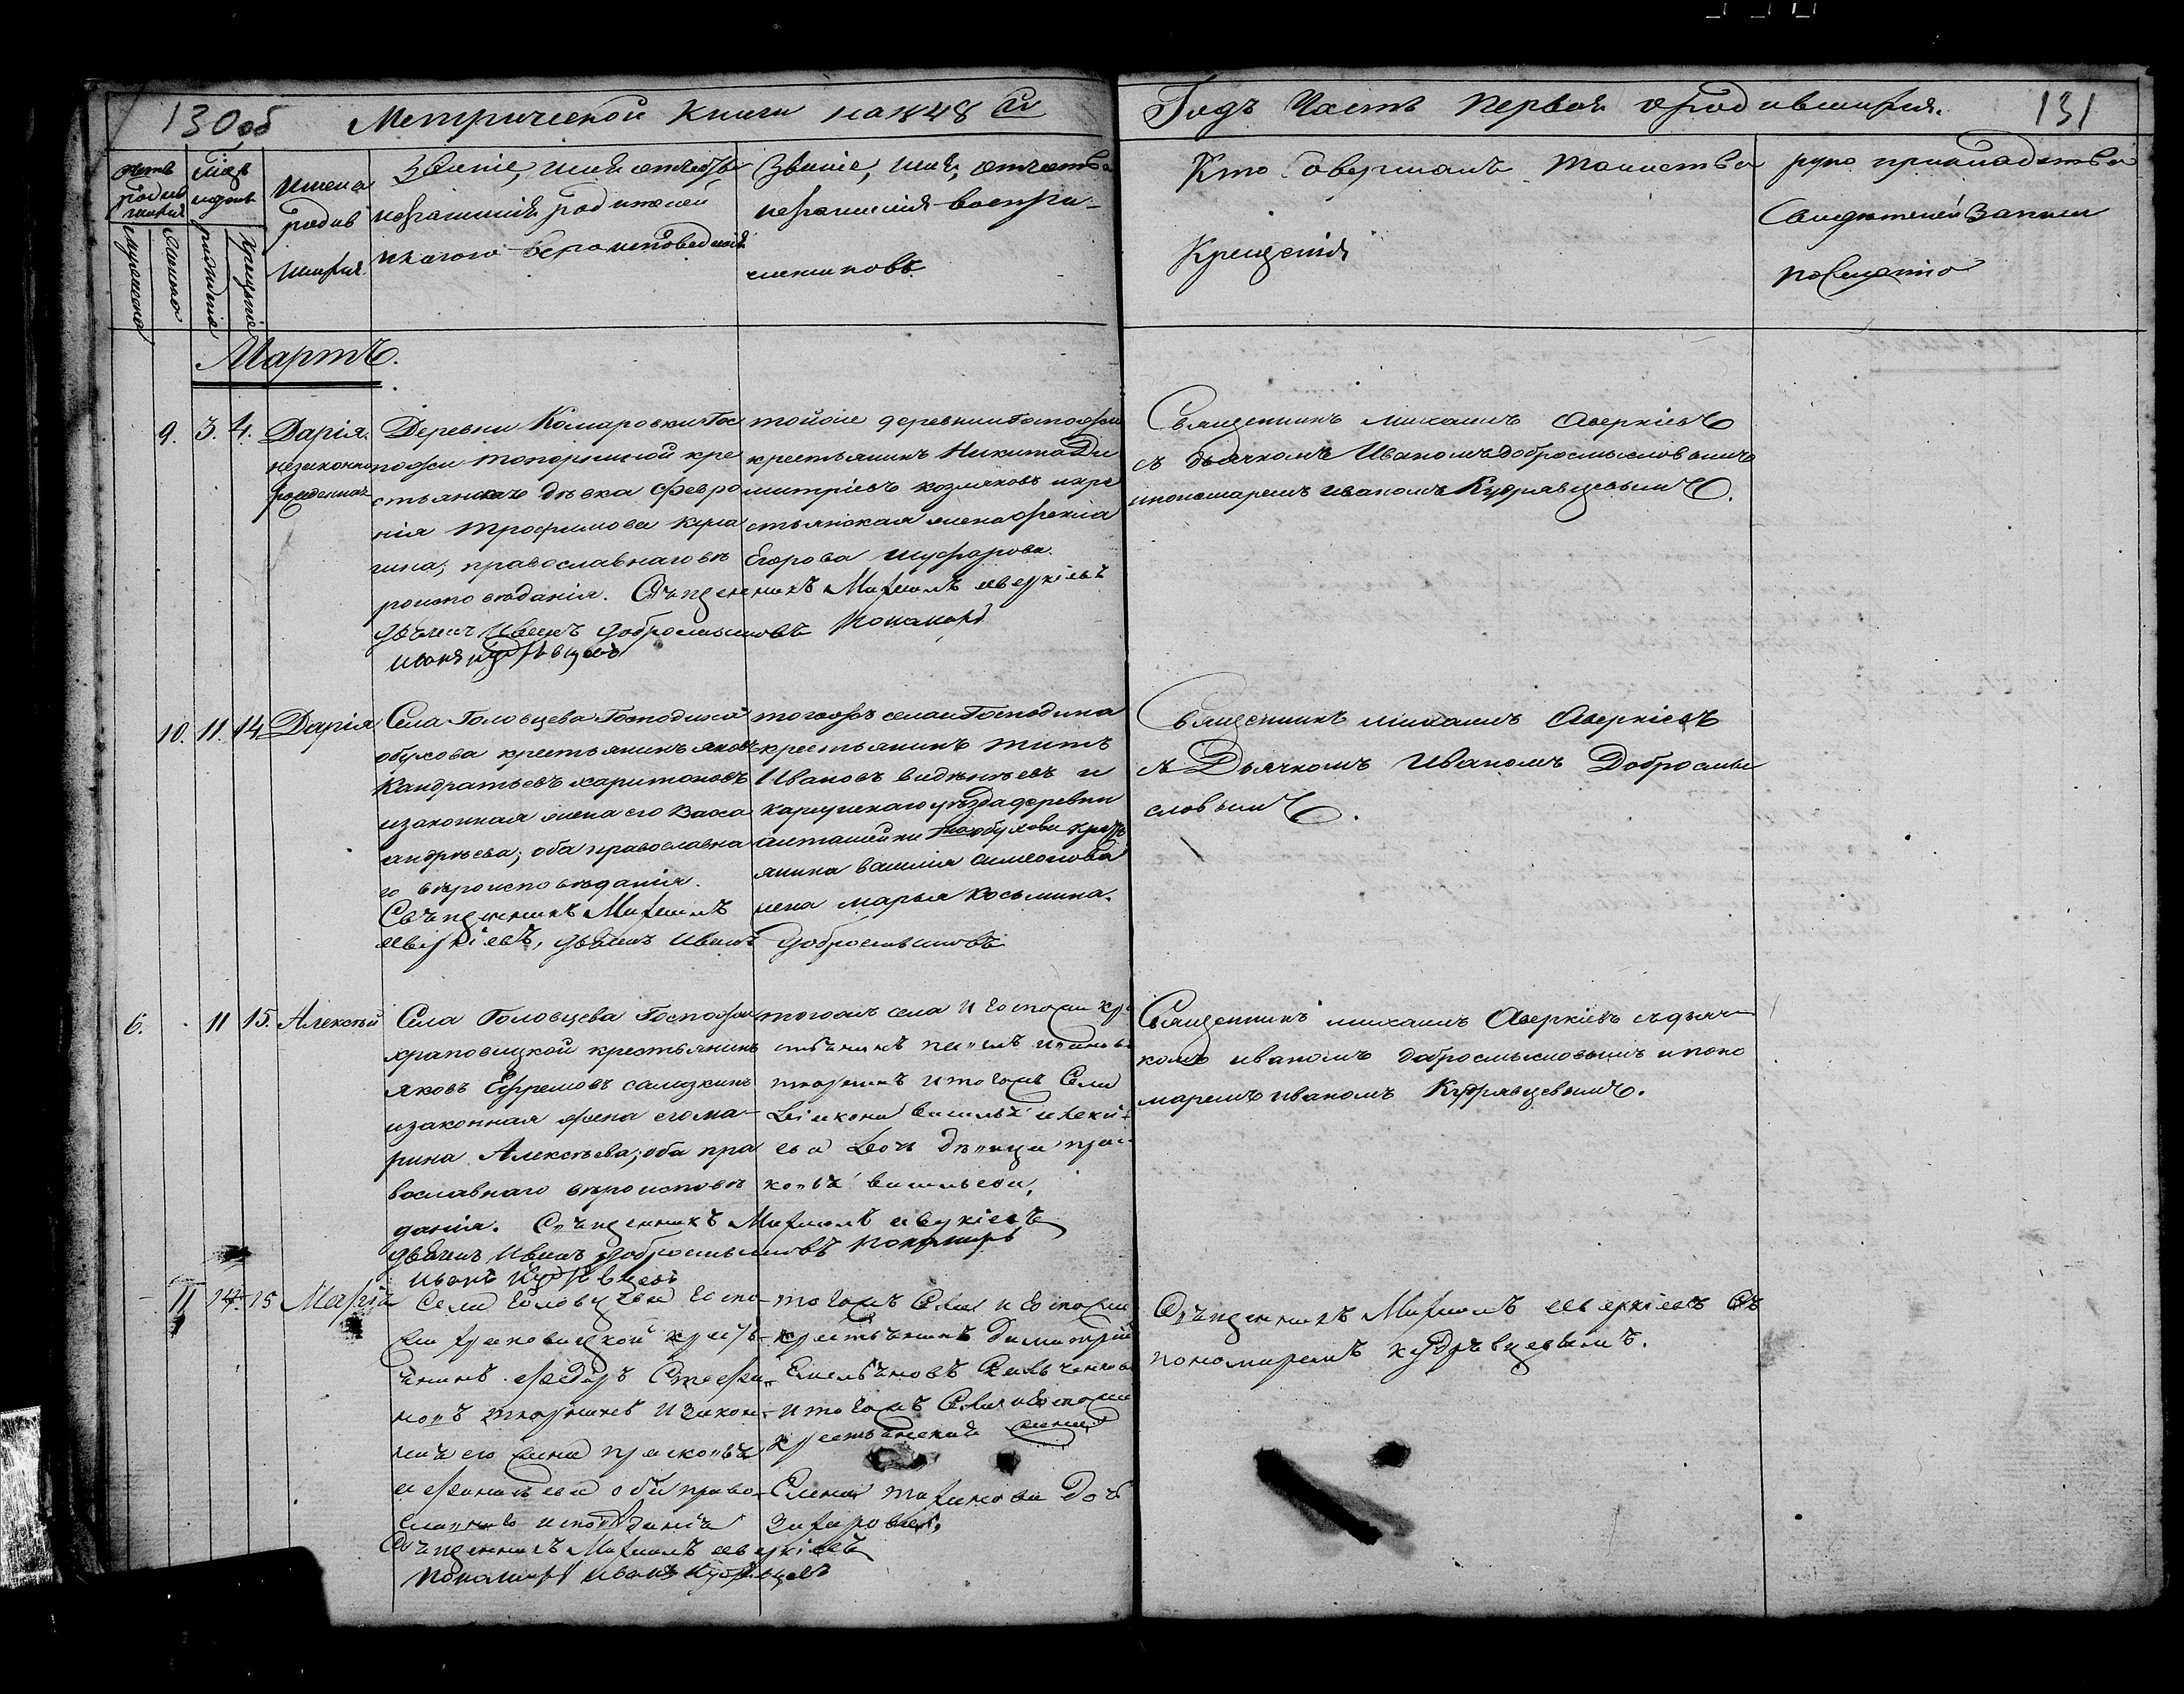 130 об
Метрической книги на 1848 й
Годъ Часть первая о родившихся.
131
Счетъ родившихся
мужеска
женска
Мѣсяцъ
рожденія
крещенія
Имена
родив
шихся
Званіе, имя, отчество
и фамилія родителей
и какого вероисповеданія
Званіе, имя, отчество
и фамилія воспри-
емниковъ
Кто совершалъ таинство
Крещенія
руко прикладство
Свидетелей записи
по желанію
Мартъ.
9. 3. 4. Дарія.
незаконно
рожденная
Деревни Комаровки Гос
пожи Топорниной кре
стьянская дѣвка Февро
нія Трофимова Кула
гина; православнаго вѣ
роисповѣданія. Священникъ Михаилъ Аверкіевъ
дьячекъ Иванъ Добросмысловъ Пономарь
Иванъ Кудрявцевъ
тойже деревни и Госпожи
крестьянинъ Никита Ди
митріевъ Козляковъ и кре
стьянская жена Фекла
Егорова
Священникъ Михаилъ Аверкіевъ
съ дьячкомъ Иваномъ Добросмысловымъ
и пономаремъ Иваномъ Кудрявцевымъ.
10. 11. 14 Дарія
Села Головцева Господина
Обухова крестьянинъ Яковъ
Кандратьевъ Харитоновъ
и законная жена его Васса
Андрѣева; оба православна
го вѣроисповѣданія.
Священникъ Михаилъ
Аверкіевъ, дьячекъ Иванъ Добросмысловъ
тогожъ села и Господина
крестьянинъ Титъ
Ивановъ и
Карсунскаго уѣзда деревни
Обухова кресть
янина Василія Симеонова
жена Марья Косьмина.
Священникъ Михаилъ Аверкіевъ
съ Дьячкомъ Иваномъ Добросмы
словымъ.
6. 11 15. Алексѣй
Села Головцева Госпожи
Храповицкой крестьянинъ
Яковъ Ефремовъ
и законная жена его Ма-
рина Алексѣева; оба пра
вославнаго вѣроисповѣ
данія. Священникъ Михаилъ Аверкіевъ
дьячекъ Иванъ Добросмысловъ Пономарь
Иванъ Кудрявцевъ
тогожъ села и Госпожи кре
стьянинъ
и тогожъ Села
Діакона Василья
ева дочь дѣвица Прас-
ковья Васильева.
Священникъ Михаилъ Аверкіевъ съ дьяч-
комъ Иваномъ Добросмысловымъ и поно
маремъ Иваномъ Кудрявцевымъ.
11 14. 15 Марія
Села Головцева Госпо-
жи Храповицкой кресть-
янинъ Федоръ
и закон-
ная его жена Прасковья
Афанасьева оба право-
славнаго исповѣданія
Священникъ Михаилъ Аверкіевъ
Пономарь Иванъ Кудрявцевъ
тогожъ Села и Госпожи
крестьянинъ Димитрій
Емельяновъ
и тогожъ Села и Госпожи
крестьянская жена
Елена
Захарова.
Священникъ Михаилъ Аверкіевъ съ
пономаремъ Кудрявцевымъ.